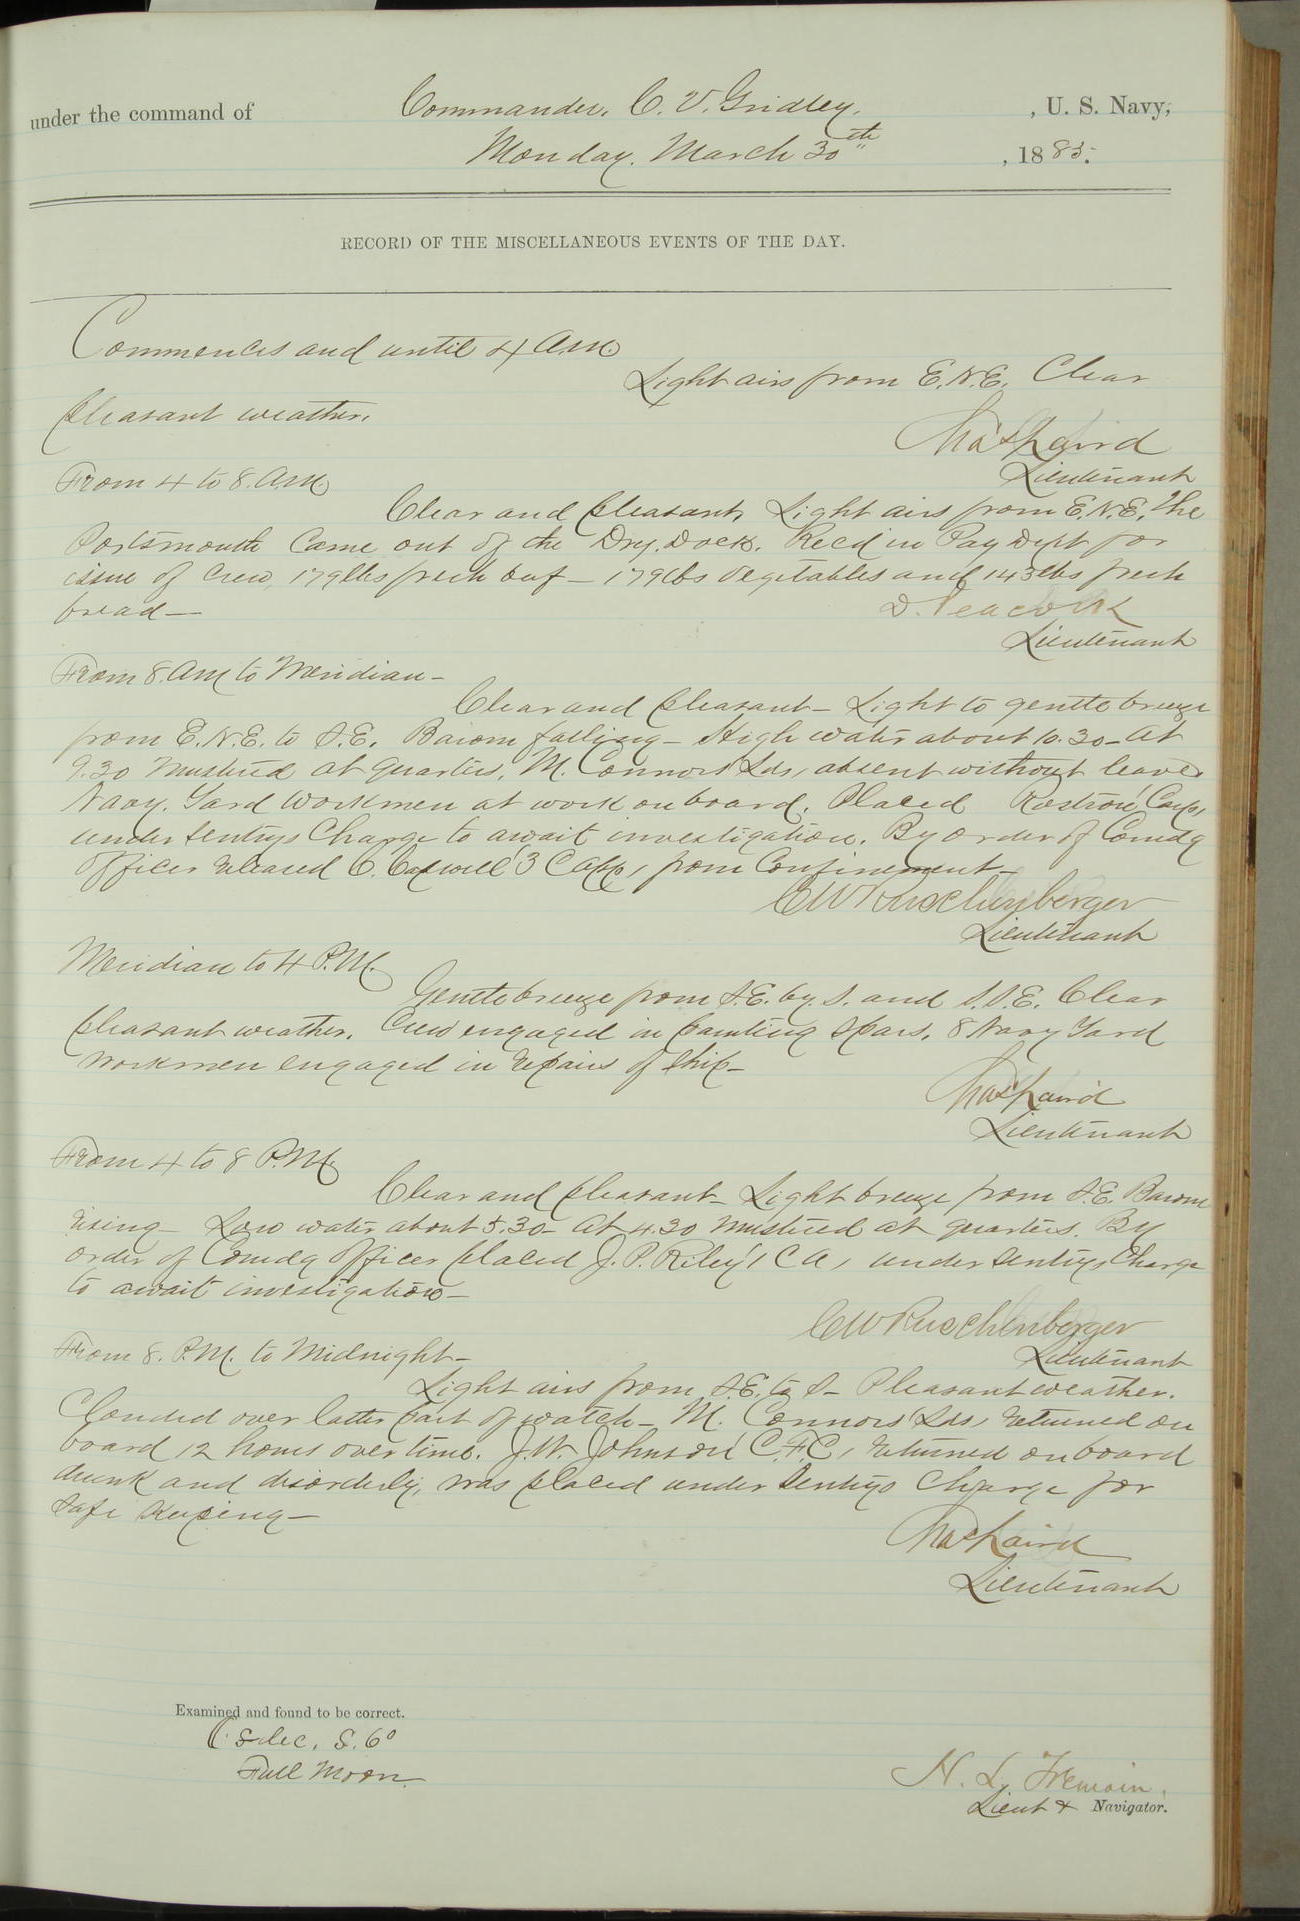 under the command of Commander, C. V. Gridley, , U. S. Navy,
Monday. March 30th , 1885.
RECORD OF THE MISCELLANEOUS EVENTS OF THE DAY.
Commences and until 4 A.M.
Light airs from E.N.E. Clear
pleasant weather.
Chas Laird
Lieutenant
From 4 to 8. A.M.
Clear and pleasant, Light airs from E.N.E. The
Portsmouth Came out of the Dry. Dock. Rec'd in Pay Dept for
issue of Crew, 179 lbs fresh beef – 179 lbs Vegetables and 143 lbs fresh
bread —
D. Peacock
Lieutenant
From 8. AM to Meridian –
Clear and pleasant – Light to gentle breeze
from E.N.E. to S.E. Barom falling – High water about 10.30 – At
9.30 mustered at quarters, M. Connors Lds, absent without leave.
Navy. Yard Workmen at work on board. Placed Rostron Corp,
under Sentrys Charge to await investigation. By order of Comdg
Officer released C. Caswell 3 C App, from Confinement –
C W Ruschenberger
Lieutenant
Meridian to 4 P.M.
Gentle breeze from S.E. by. S. and S.S.E. Clear
pleasant weather. Crew engaged in painting Spars. 8 Navy Yard
workmen engaged in repairs of Ship –
Chas Laird
Lieutenant
From 4 to 8 P.M.
Clear and pleasant – Light breeze from S.E. Barom
rising – Low water about 5.30 – At 4.30 mustered at quarters. By
order of Comdg Officer placed J. P. Riley 1 C A, under Sentrys Charge
to await investigation –
C W Ruschenberger
Lieutenant
From 8. P.M. to Midnight –
Light airs from S.E. to S – Pleasant weather.
Clouded over latter part of watch – M. Connors Lds, returned on
board 12 hours over time. J. W. Johnson C.F.C, returned on board
drunk and disorderly, was placed under Sentrys Charge for
Safe Keeping –
Chas Laird
Lieutenant
Examined and found to be correct.
☾ s dec. S. 6°
Full Moon.
H. L. Tremain,
Lieut & Navigator.